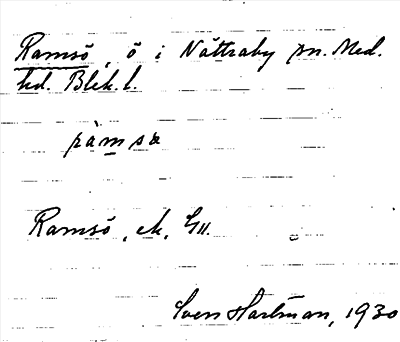 Ramsö, ö i Nättraby sn. Med.
hd. Blek. l.
ràmsa
Ramsö, ek,
Sven Hartman, 1930